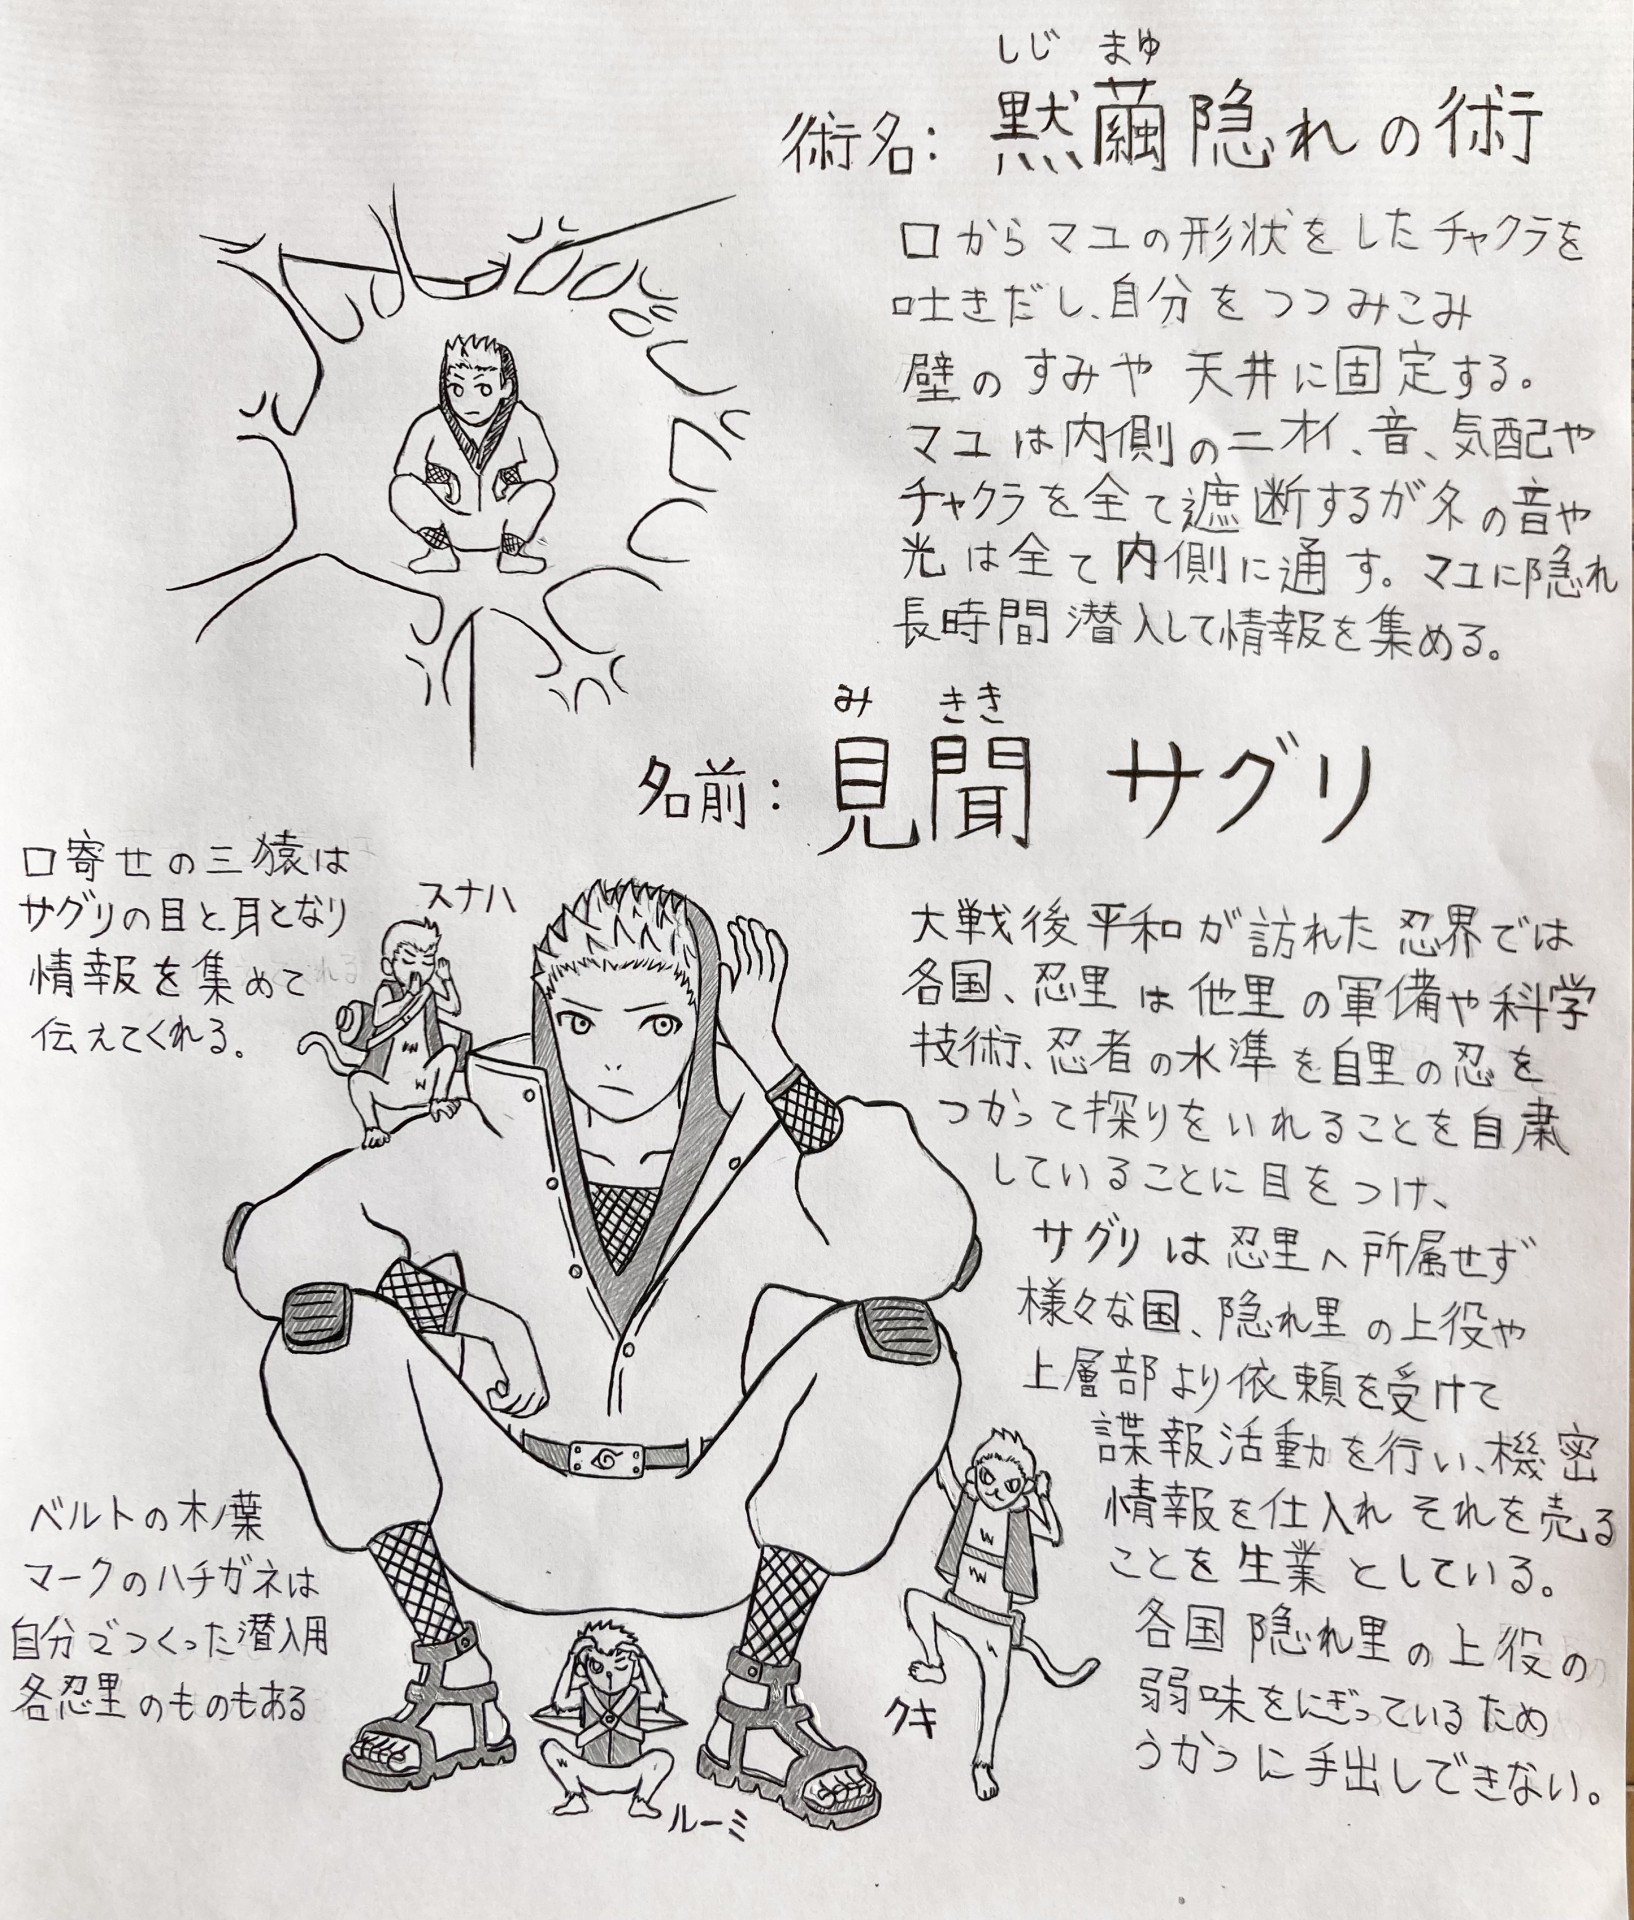 しじ まゆ
術名： 黙繭隠れの術
口からマユの形状をしたチャクラを
吐きだし、自分をつつみこみ
壁のすみや 天井に固定する。
マユは内側のニオイ、音、気配や
チャクラを全て遮断するが外の音や
光は全て内側に通す。マユに隠れ
長時間潜入して情報を集める。
み きき
名前： 見聞 サグリ
口寄せの三猿は
サグリの目と耳となり
情報を集めて
伝えてくれる。
スナハ
大戦後平和が訪れた忍界では
各国、忍里は他里の軍備や科学
技術、忍者の水準を自里の忍を
つかって探りをいれることを自粛
していることに目をつけ、
サグリは忍里へ所属せず
様々な国、隠れ里の上役や
上層部より依頼を受けて
諜報活動を行い、機密
情報を仕入れそれを売る
ことを生業としている。
各国隠れ里の上役の
弱味をにぎっているため
うかつに手出しできない。
ベルトの木ノ葉
マークのハチガネは
自分でつくった潜入用
各忍里のものもある
クキ
ルーミ